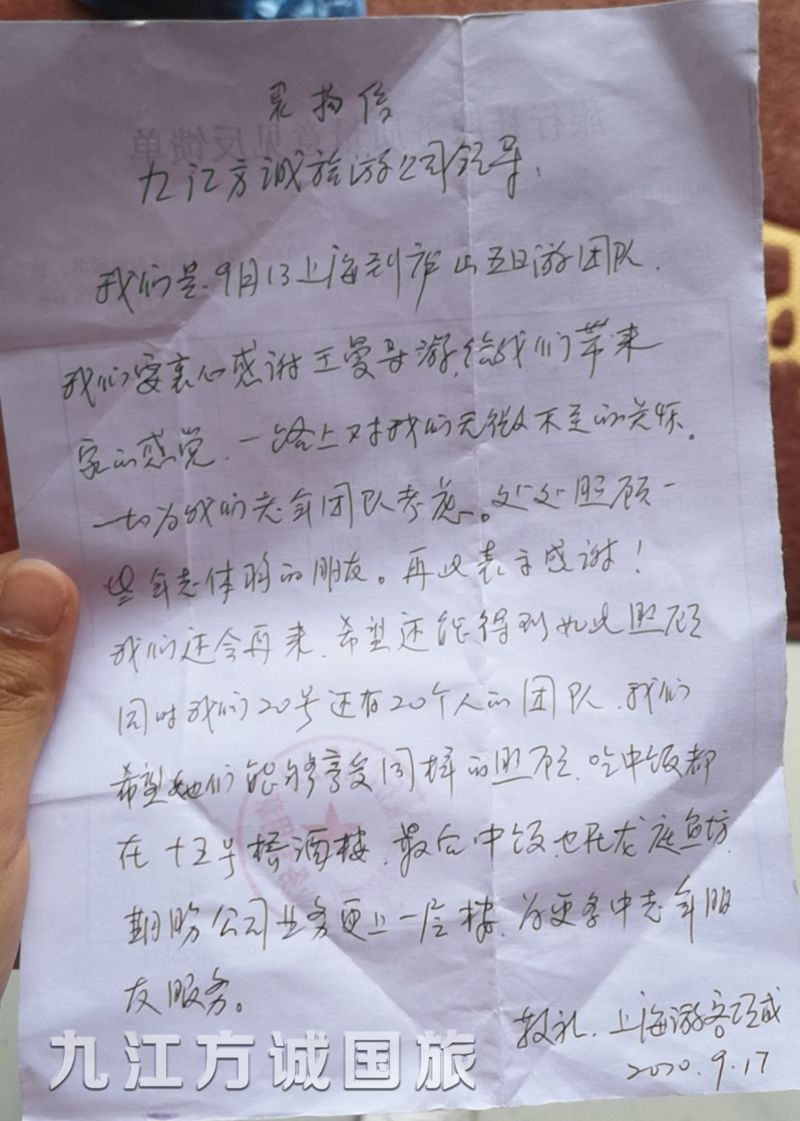 表扬信
九江方诚旅游公司领导:
我们是9月13上海到庐山五日游团队.
我们要衷心感谢王曼导游,给我们带来
家的感觉.一路上对我们无微不至的关怀。
一切为我们老年团队考虑。处处照顾一
些年老体弱的朋友。再此表示感谢!
我们还会再来.希望还能得到如此照顾
同时我们20号还有20个人的团队.我们
希望她们能够享受同样的照顾.吃中饭都
在十五号桥酒楼.最后中饭也在龙庭鱼坊.
期盼公司业务更上一层楼.为更多中老年朋
友服务。
敬礼.上海游客
2020.9.17
九江方诚国旅